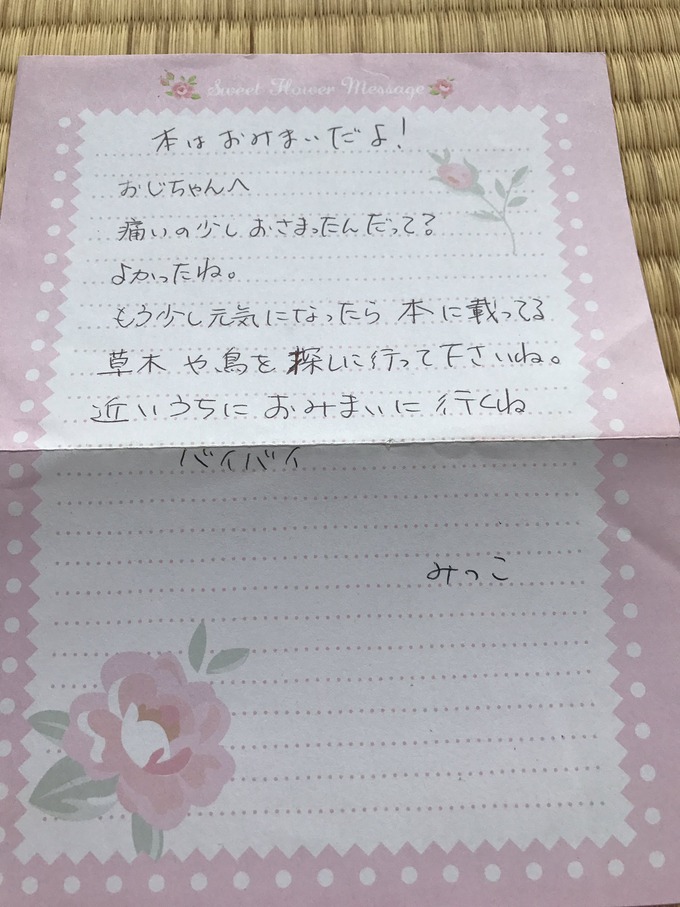 Sweet Flower Message
本はおみまいだよ!
おじちゃんへ
痛いの少しおさまったんだって?
よかったね。
もう少し元気になったら 本に載ってる
草木や、鳥を探しに行って下さいね。
近いうちに おみまいに 行くね
バイバイ
みつこ